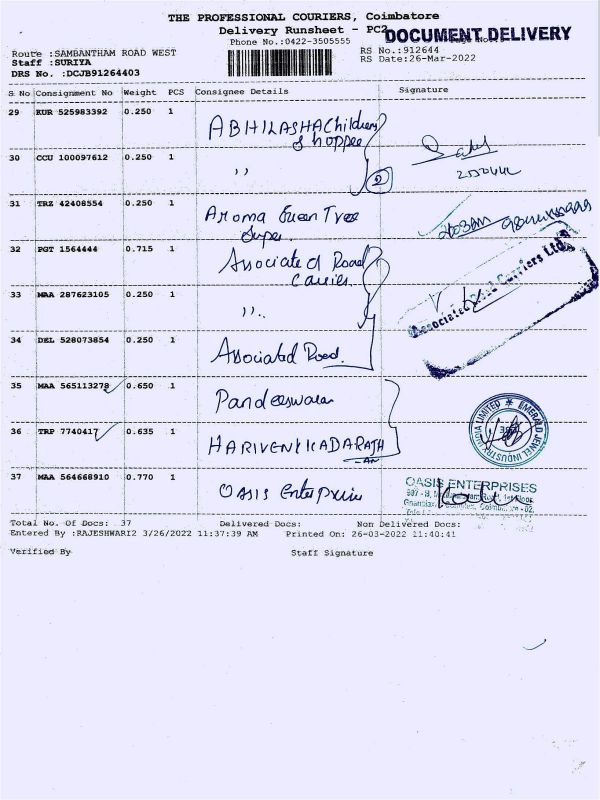 THE PROFESSIONAL COURIERS, Coimbatore
Delivery Runsheet - PC2
DOCUMENT DELIVERY
Phone No.:0422-3505555
RS No.:912644
Route :SAMBANTHAM ROAD WEST
RS Date:26-Mar-2022
Staff :SURIYA
DRS No. :DCJB91264403
S No Consignment No Weight PCS Consignee Details Signature
29 KUR 525983392 0.250 1 ABHILASHA Childrens
Shoppee
30 CCU 100097612 0.250 1 ,, 2
31 TRZ 42408554 0.250 1 Aroma Green Tree
Super
32 PGT 1564444 0.715 1 Associated Road
Carries
33 MAA 287623105 0.250 1 ,,
Associated Road Carriers Ltd.
34 DEL 528073854 0.250 1 Associated Road
35 MAA 565113278 0.650 1 Pandeeswaran
36 TRP 7740417 0.635 1 HARIVENKKADARAJH
AN
EMERALD JEWEL INDUSTRY INDIA LIMITED
37 MAA 564668910 0.770 1 OASIS Enterprises
OASIS ENTERPRISES
Total No. Of Docs: 37 Delivered Docs: Non Delivered Docs:
Entered By :RAJESHWARI2 3/26/2022 11:37:39 AM Printed On: 26-03-2022 11:40:41
Verified By Staff Signature